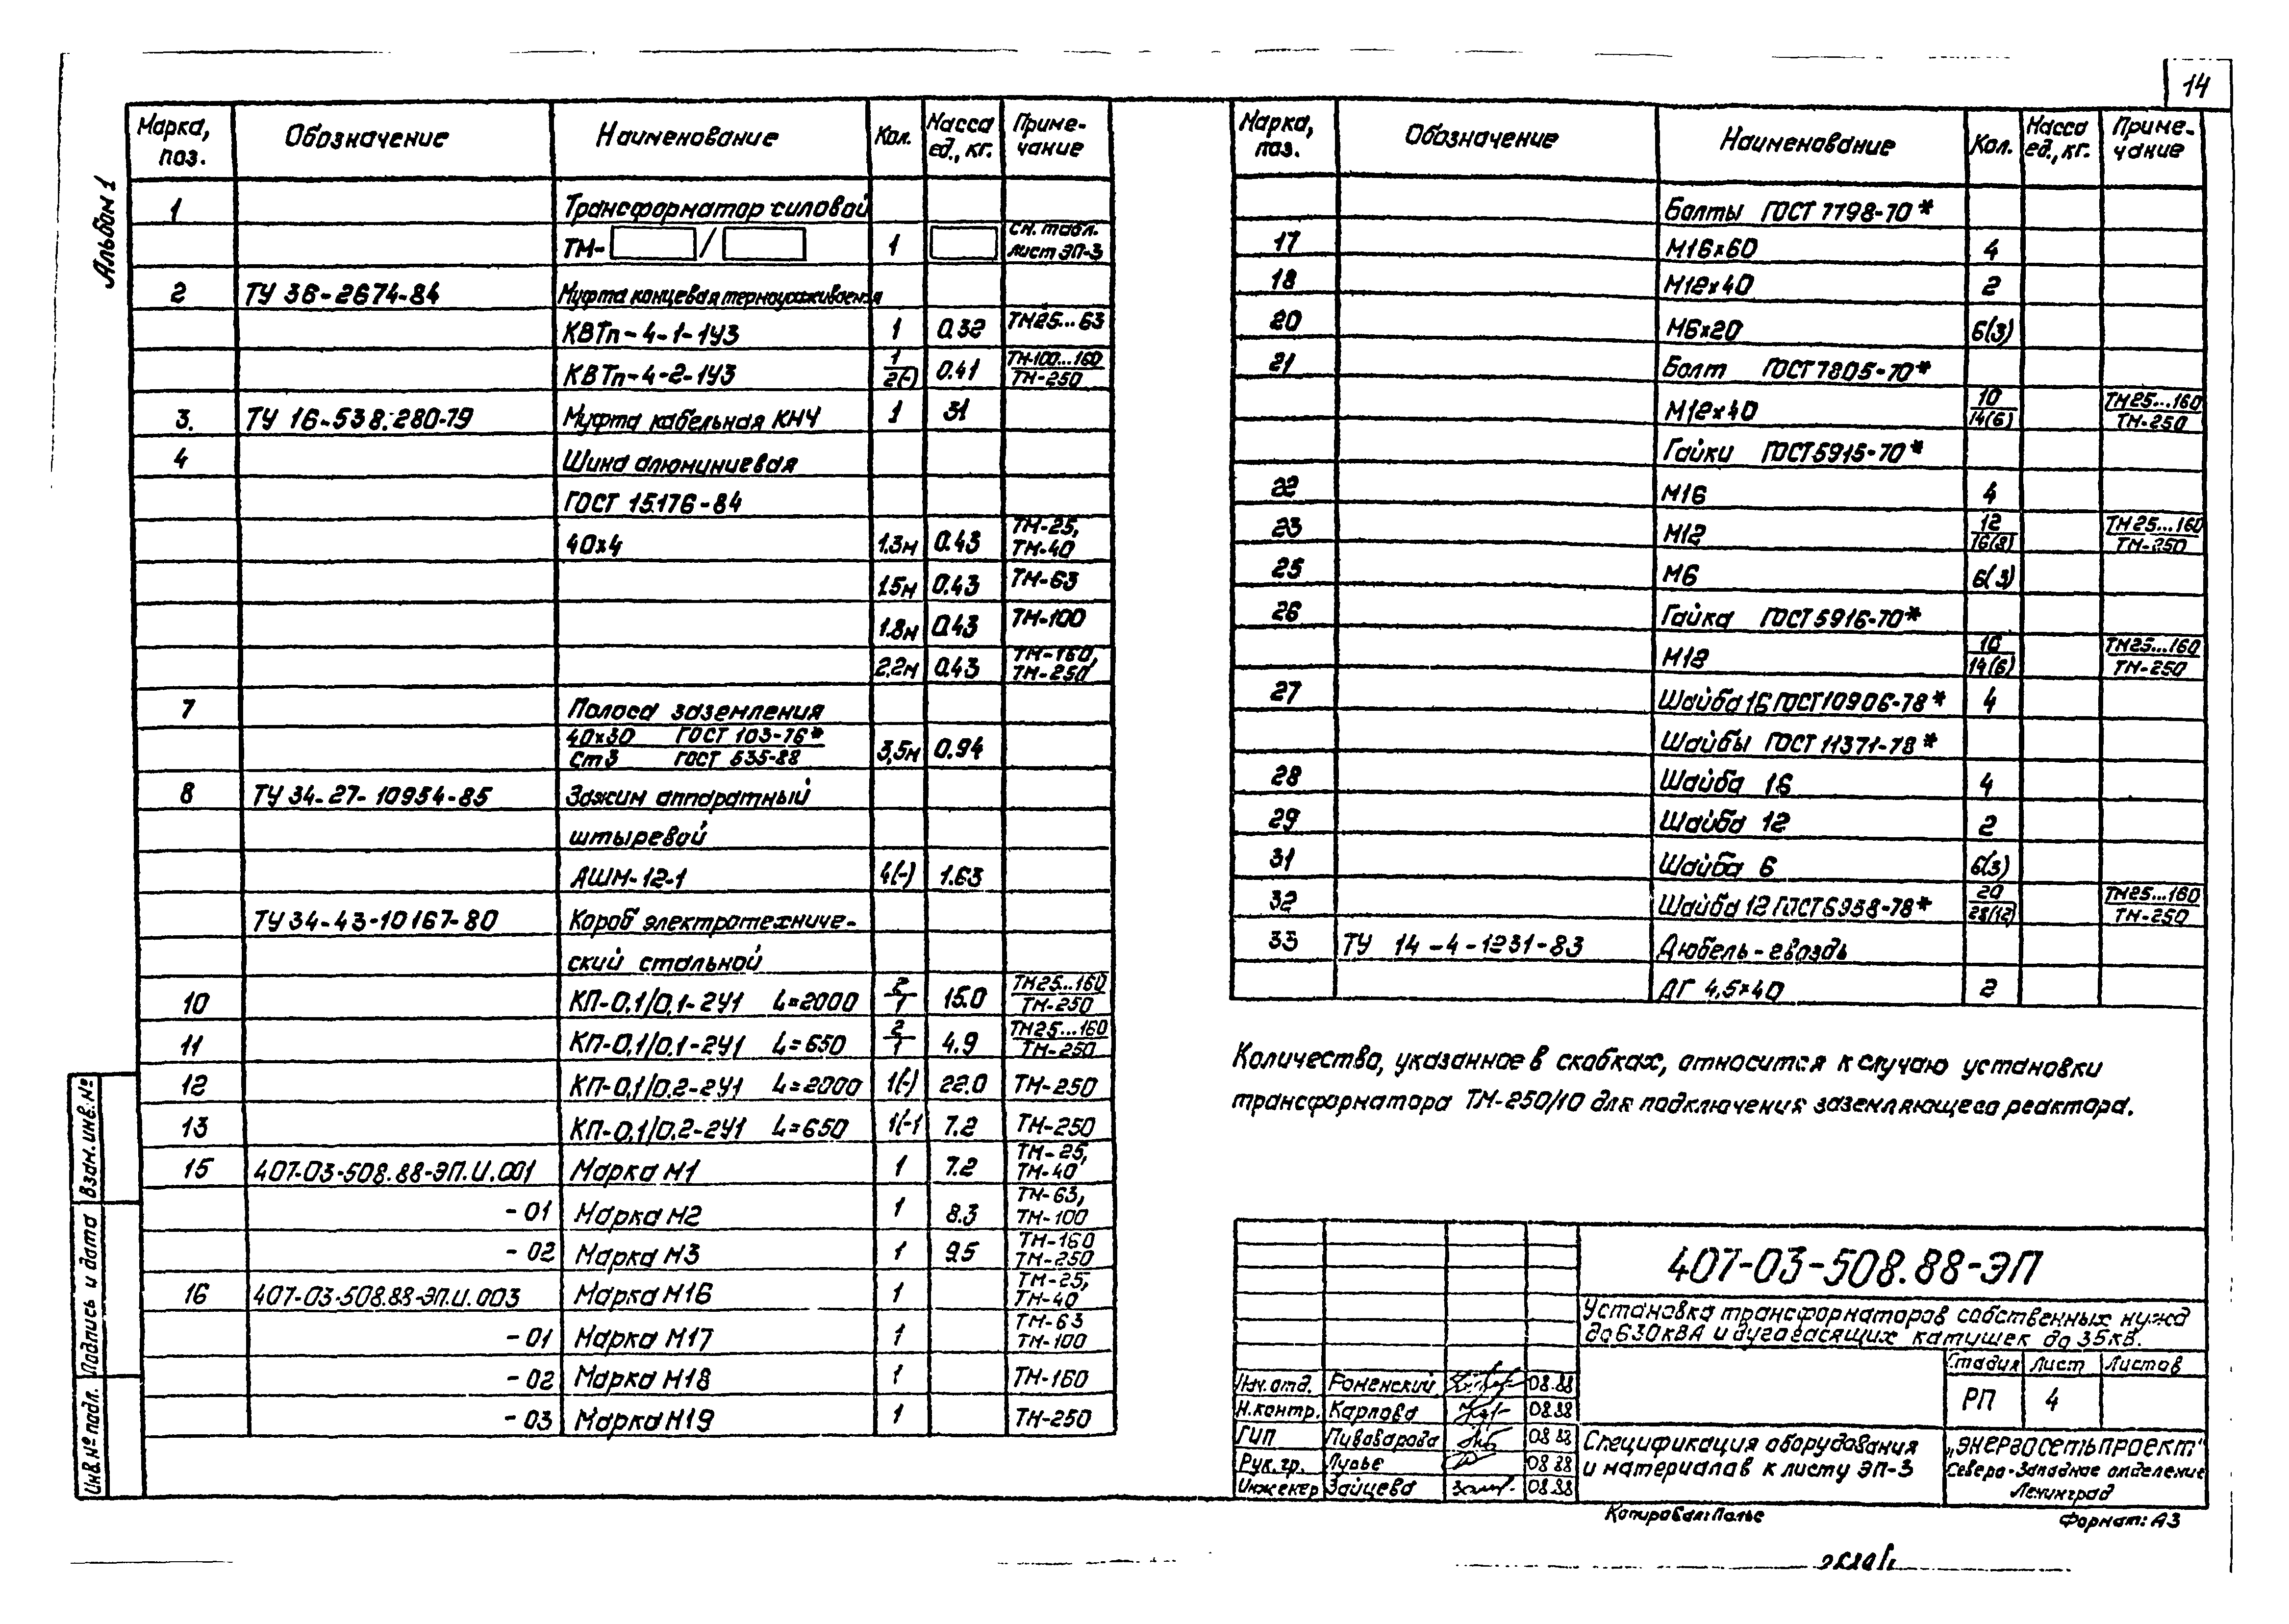 14
Альбом 1
Марка, поз. Обозначение Наименование Кол. Масса ед., кг. Примечание
1 Трансформатор силовой
ТМ- / 1 см. табл. лист ЭП-3
2 ТУ 36-2674-84 Муфта концевая термоусаживаемая
КВТп-4-1-1У3 1 0.32 ТМ25...63
КВТп-4-2-1У3 1/2(-) 0.41 ТМ-100...160/ТМ-250
3. ТУ 16-538.280-79 Муфта кабельная КНЧ 1 31
4 Шина алюминиевая
ГОСТ 15.176-84
40х4 1.3м 0.43 ТМ-25, ТМ-40
1.5м 0.43 ТМ-63
1.8м 0.43 ТМ-100
2.2м 0.43 ТМ-160, ТМ-250
7 Полоса заземления
40х30 ГОСТ 103-76*/Ст3 ГОСТ 535-88 3,5м 0.94
8 ТУ 34-27-10954-85 Зажим аппаратный
штыревой
АШМ-12-1 4(-) 1.63
ТУ 34-43-10167-80 Короб электротехниче-
ский стальной
10 КП-0,1/0,1-2У1 L=2000 2/1 15.0 ТМ25...160/ТМ-250
11 КП-0,1/0.1-2У1 L=650 2/1 4.9 ТМ25...160/ТМ-250
12 КП-0,1/0.2-2У1 L=2000 1(-) 22.0 ТМ-250
13 КП-0,1/0.2-2У1 L=650 1(-) 7.2 ТМ-250
15 407-03-508.88-ЭП.И.001 Марка М1 1 7.2 ТМ-25, ТМ-40
-01 Марка М2 1 8.3 ТМ-63, ТМ-100
-02 Марка М3 1 9.5 ТМ-160 ТМ-250
16 407-03-508.88-ЭП.И.003 Марка М16 1 ТМ-25, ТМ-40
-01 Марка М17 1 ТМ-63 ТМ-100
-02 Марка М18 1 ТМ-160
-03 Марка М19 1 ТМ-250
Марка, поз. Обозначение Наименование Кол. Масса ед., кг. Примечание
Болты ГОСТ 7798-70*
17 М16х60 4
18 М12х40 2
20 М6х20 6(3)
21 Болт ГОСТ 7805-70*
М12х40 10/14(6) ТМ25...160/ТМ-250
Гайки ГОСТ 5915-70*
22 М16 4
23 М12 12/16(8) ТМ25...160/ТМ-250
25 М6 6(3)
26 Гайка ГОСТ 5916-70*
М12 10/14(6) ТМ25...160/ТМ-250
27 Шайба 16 ГОСТ 10906-78* 4
Шайбы ГОСТ 11371-78*
28 Шайба 16 4
29 Шайба 12 2
31 Шайба 6 6(3)
32 Шайба 12 ГОСТ 6958-78* 20/28(12) ТМ25...160/ТМ-250
33 ТУ 14-4-1231-83 Дюбель-гвоздь
ДГ 4,5х40 2
Количество, указанное в скобках, относится к случаю установки
трансформатора ТМ-250/10 для подключения заземляющего реактора.
407-03-508.88-ЭП
Установка трансформаторов собственных нужд
до 630 кВА и дугогасящих катушек до 35кВ.
Стадия Лист Листов
РП 4
Нач.отд. Роменский 08.88
Н.контр. Карпова 08.88
ГИП Пивоварова 08.88
Рук.гр. Лурье 08.88
Инженер Зайцева 08.88
Спецификация оборудования
и материалов к листу ЭП-3
„Энергосетьпроект"
Северо-Западное отделение
Ленинград
Копировал: Полье
Формат: А3
Взам. инв. №
Подпись и дата
Инв. № подл.